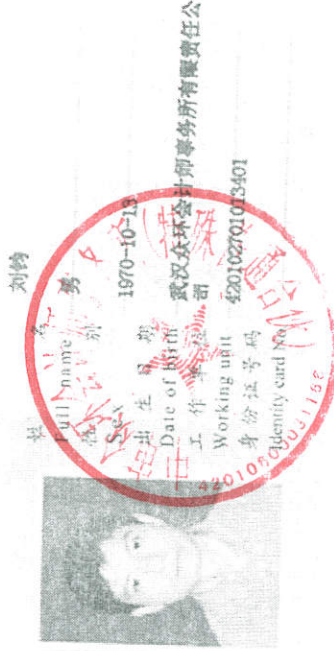 姓 名 刘钧
Full name
性 别 男
Sex
出 生 日 期 1970-10-13
Date of birth
工 作 单 位 武汉众环会计师事务所有限责任公
司
Working unit
身份证号码 420102701013401
Identity card No.